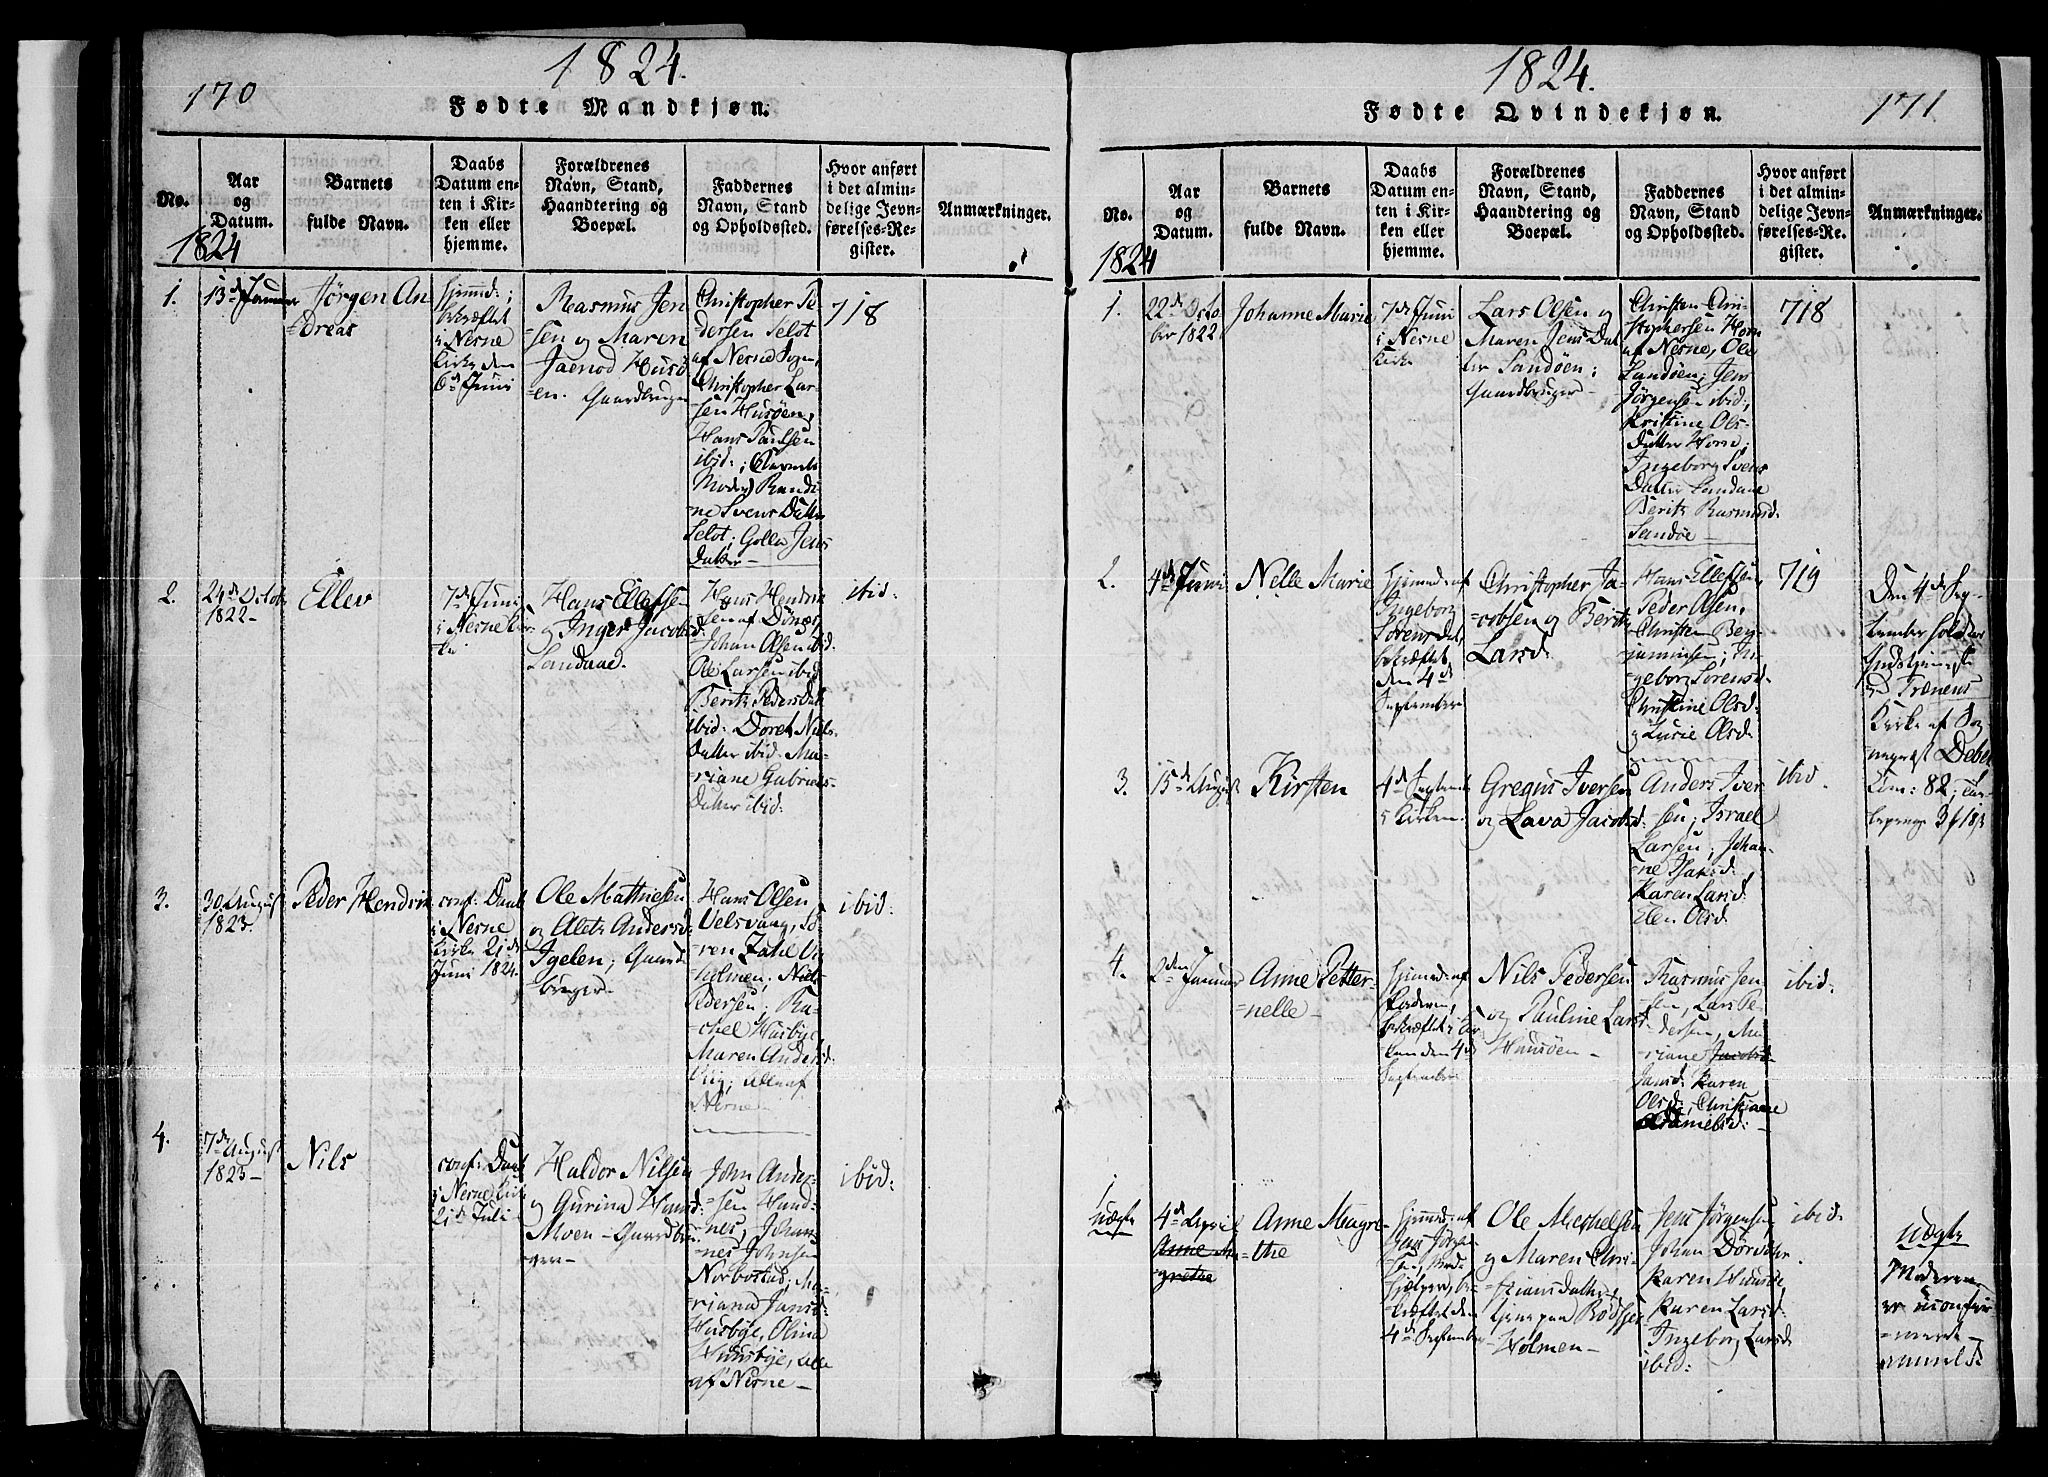 170
1824.
Fødte Mandkjøn.
No.
Aar
og
Datum.
Barnets
fulde Navn.
Daabs
Datum en-
ten i Kir-
ken eller
hjemme.
Forældrenes
Navn, Stand,
Haandtering og
Boepæl.
Faddernes
Navn, Stand
og Opholdssted.
Hvor anført
i det almin-
delige Jevn-
førelses-Re-
gister.
Anmærkninger.
1824
1.
13de Januar
Jörgen An
=dreas
hjemmed:;
bekræftet
i Nesne
Kirke den
6te Juni
Rasmus Jen
sen og Maren
Husö
en. Gaardbruger
Christopher Pe
dersen Selöt
af Nesne Sogn,
Christopher Lar-
sen Husöen,
Hans Paulsen
ibid:;
Moder Randi
ne Svens Datter
Selöt; Jens
datter
718
2.
24de Octob.
1822
Ellev
7de Juni
i Nesne Kir-
ke
Hans Ellefse-
og Inger Jacobsd:
Sandaae.
Hans Hendrik
sen af Dönæs,
Johan Olsen ibid
Ole Larsen ibid
Berith Pedersdat
ibid: Doreth Niels-
datter ibid. Ma-
riane Gabriels
datter ibid:
ibid:
3.
30 August
1823.
Peder Hendrik
conf: Daab
i Nesne
Kirke 21de
Juni 1824.
Ole Mathiesen
og Aleth Andersd:
Igelen; Gaard
bruger
Hans Olsen
Velsvaag, Sö
ren Zahl
holmen; Niels
Pedersen; Ra-
chel Husbye,
Maren Andersd:
alle af
Nesne
ibid:
4.
7de August
1823
Nils
conf: Daab
i Nesne Kirke
21de Juli
Haldor Nilsen
og Gurina Hansd:
Moen Gaardbru
ger
John Ander
=sen Hand-
nes, Johan-
nes Johnsen
Norbostad; Ma-
riana Jansd:
Husbÿe, Olina
Huusbÿe, alle
af Nesne
ibid:
1824.
171
Fødte Qvindekjøn.
No.
Aar
og
Datum.
Barnets
fulde Navn.
Daabs
Datum en-
ten i Kir-
ken eller
hjemme.
Forældrenes
Navn, Stand,
Haandtering og
Boepæl.
Faddernes
Navn, Stand
og Opholdssted.
Hvor anført
i det almin-
delige Jevn-
førelses-Re-
gister.
Anmærkninger.
1824
1.
22de Octo
ber 1822
Johanne Marie
7de Juni
i Nesne
Kirke
Lars Olsen og
Maren Jens Dat
ter Sandöen;
Gaardbruger
Christen Chri
stophersen Horn
af Nesne, Ole
Sandöen; Jens
Jörgensen ibid;
Kristine Ols-
datter Horn;
Ingeborg Svens
Datter Sandaae
Berith Rasmusd:
Sandöe
718
2.
4de Juni
Nelle Marie
hjemmed: af
Ingeborg
Sörensdat,
bekræftet
den 4de
September
Christopher Ja
=cobsen og Berith
Larsd:
Hans Ellefsen,
Peder Olsen,
Christen Ben-
jaminsen; In-
geborg Sörensd:
Christine Olsd:
og Lusie Olsd.
719
Den 4de Sep-
tember holdtes
Gudstjeneste
ved Trænens
Kirke af Sog-
nepræst Debes
Com: 82; Tav-
lepenge
3.
15de August
Kirsten
4de Septemb
i Kirken
Gregus Iversen
og Lava Jacobsd:
Anders Iver
sen; Israel
Larsen; Johan-
ne Isaksd:
Karen Larsd:
Elen Olsd:
ibid.
4.
2den Januar
Anne Petter-
=nelle
hjemmed: af
Faderen,
bekræftet i Kir
ken den 4de
September
Nils Pedersen
og Pauline Larsd:
Huusöen
Rasmus Jen-
sen, Lars Pe-
dersen, Ma-
riane Jacobsd
Jansd: Karen
Olsd:, Christiane
ibid:
1
uægte
4de April
Anne Ma
grethe
Anne Magre-
=the
hjemmed: af
Jens Jörgen
sen, Med-
hjelper, be-
kræftet den
4de September
Ole Michelsen
og Maren Chri-
stiansdatter,
tjene paa Rödsger-
Holmen
Jens Jörgensen,
Johan
Karen Huusöe
Karen Larsd.
Ingeborg Larsd:
ibid:
ibid:
Uægte
Moderen
er uconfir
=meret